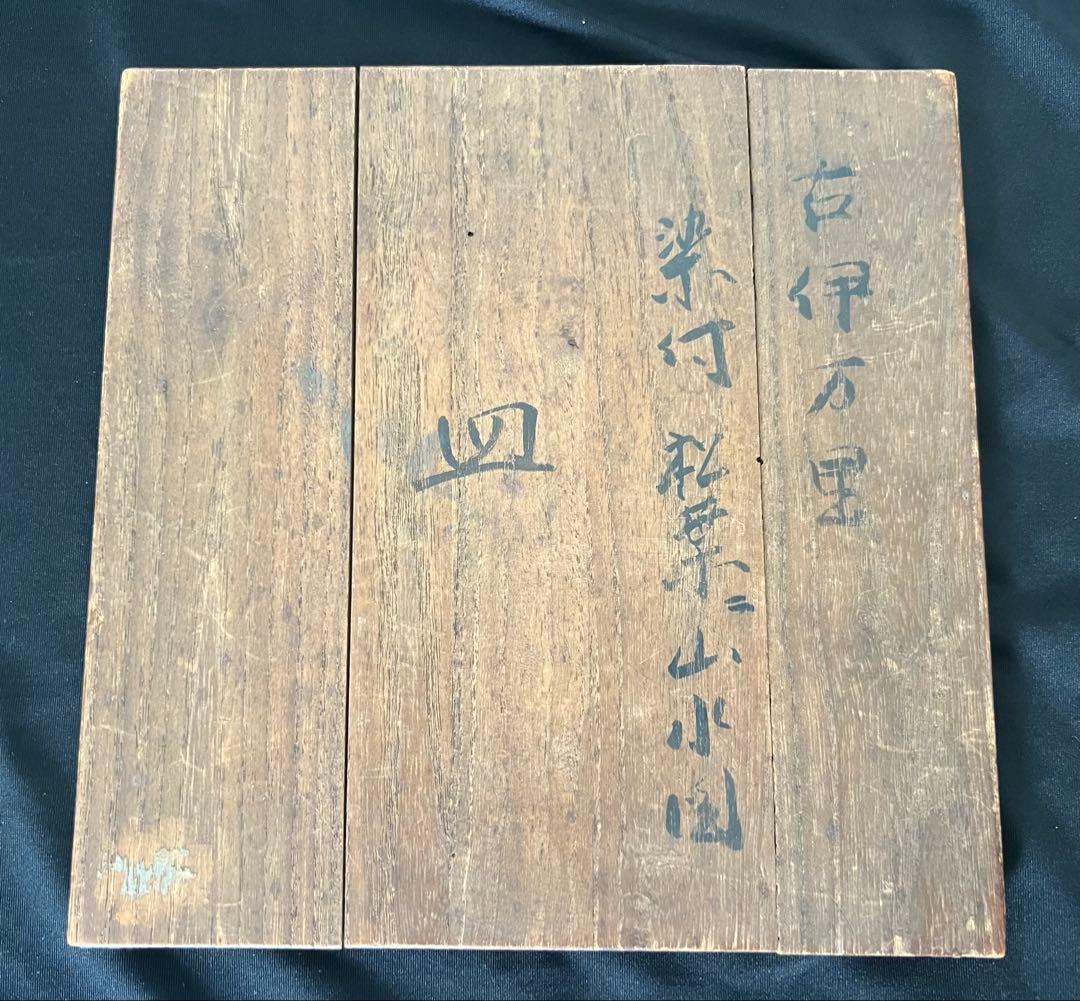 古伊万里
染付 松葉ニ山水図
皿